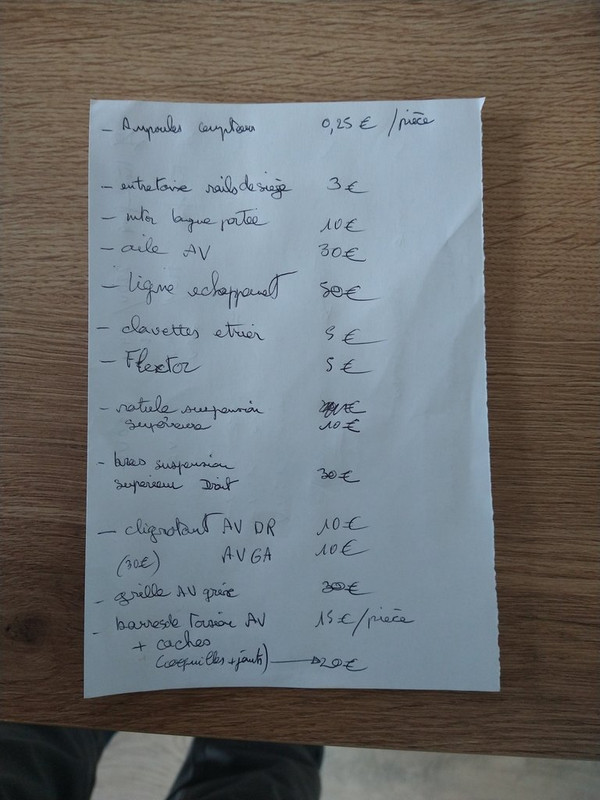 - Ampoules compteur 0,25 € /pièce
- entretoise rails de siège 3 €
- mtor bague portée 10 €
- aile AV 30 €
- Ligne echappement 50 €
- clavettes etrier 5 €
- Flector 5 €
- rotule suspension
superieure 10 €
- bras suspension
superieur Droit 30 €
- clignotant AV DR 10 €
(30€) AV GA 10 €
- grille AV grise 30 €
- barres de Torsion AV 15 € /pièce
+ caches
(coquilles + joints) 20 €